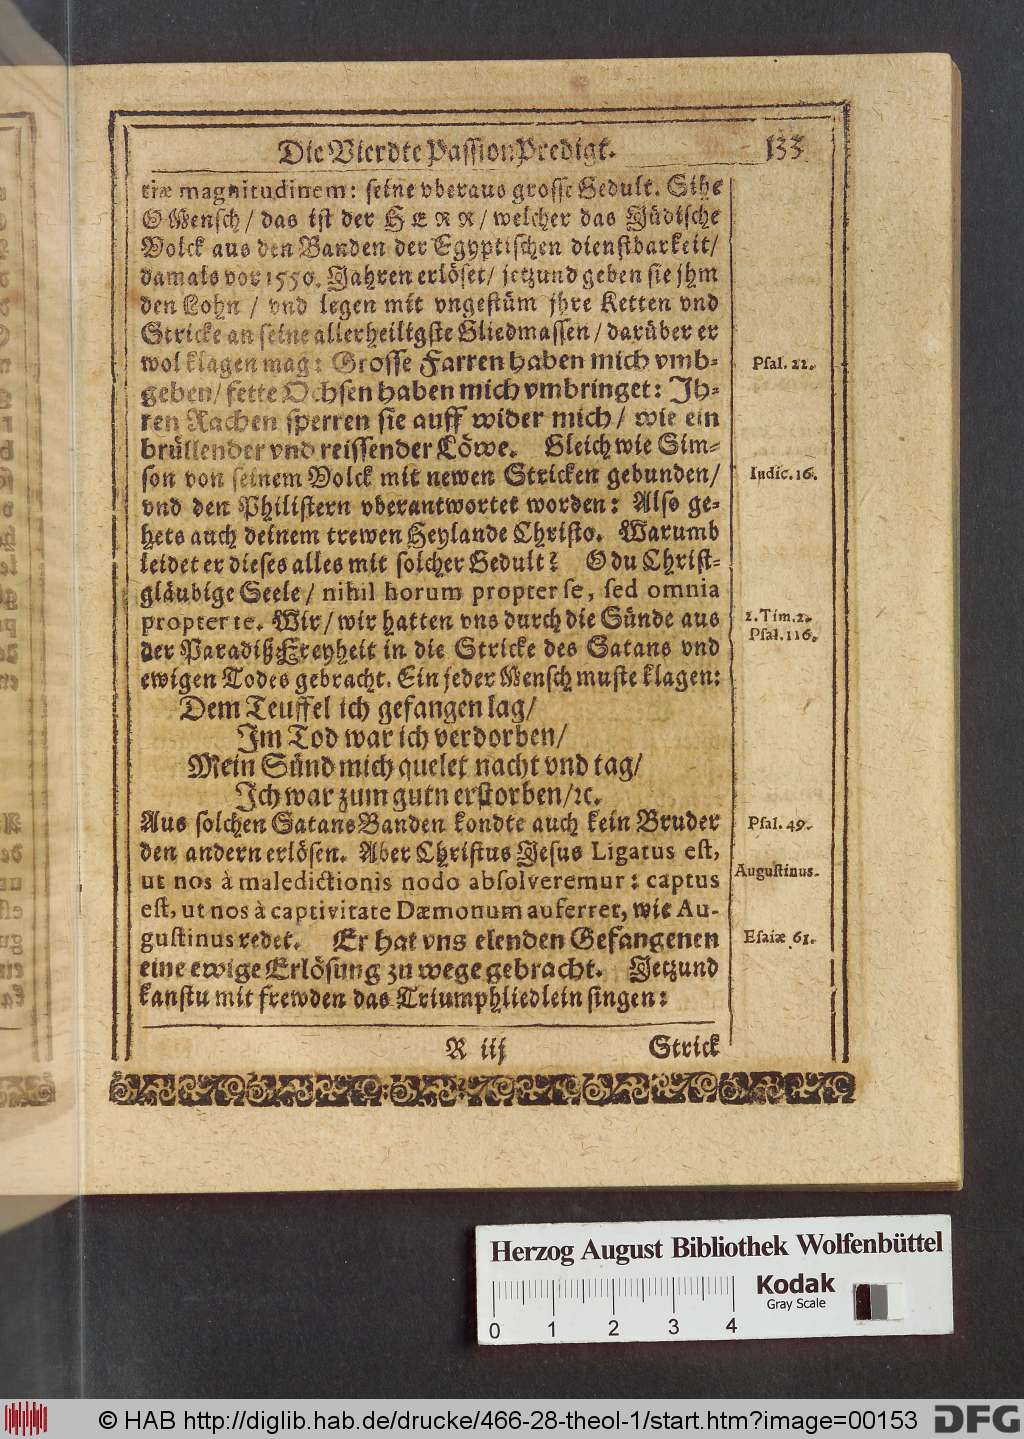 Die Vierdte PassionPredigt. 133
tiæ magnitudinem: seine vberaus grosse Gedult. Sihe
O Mensch / das ist der HERR / welcher das Jüdische
Volck aus den Banden der Egyptischen dienstbarkeit /
damals vor 1550. Jahren erlöset / jetzund geben sie jhm
den Lohn / vnd legen mit vngestüm jhre Ketten vnd
Stricke an seine allerheiligste Gliedmassen / darüber er
wol klagen mag: Grosse Farren haben mich vmb-
Psal. 22.
geben / fette Ochsen haben mich vmbringet: Jh-
ren Rachen sperren sie auff wider mich / wie ein
brüllender vnd reissender Löwe. Gleich wie Sim-
son von seinem Volck mit newen Stricken gebunden /
Iudic. 16.
vnd den Philistern vberantwortet worden: Also ge-
hets auch deinem trewen Heylande Christo. Warumb
leidet er dieses alles mit solcher Gedult? O du Christ-
gläubige Seele / nihil horum propter se, sed omnia
propter te. Wir / wir hatten vns durch die Sünde aus
2. Tim. 2.
Psal. 116.
der Paradiß-Freyheit in die Stricke des Satans vnd
ewigen Todes gebracht. Ein jeder Mensch muste klagen:
Dem Teuffel ich gefangen lag /
Im Tod war ich verdorben /
Mein Sünd mich quelet nacht vnd tag /
Ich war zum gutn erstorben / ꝛc.
Aus solchen Satans Banden kondte auch kein Bruder
Psal. 49.
den andern erlösen. Aber Christus Jesus Ligatus est,
ut nos à maledictionis nodo absolveremur: captus
Augustinus.
est, ut nos à captivitate Dæmonum auferret, wie Au-
gustinus redet. Er hat vns elenden Gefangenen
Esaiæ 61.
eine ewige Erlösung zu wege gebracht. Jetzund
kanstu mit frewden das Triumphliedlein singen:
R iij Strick
Herzog August Bibliothek Wolfenbüttel
Kodak
Gray Scale
0 1 2 3 4
© HAB http://diglib.hab.de/drucke/466-28-theol-1/start.htm?image=00153
DFG